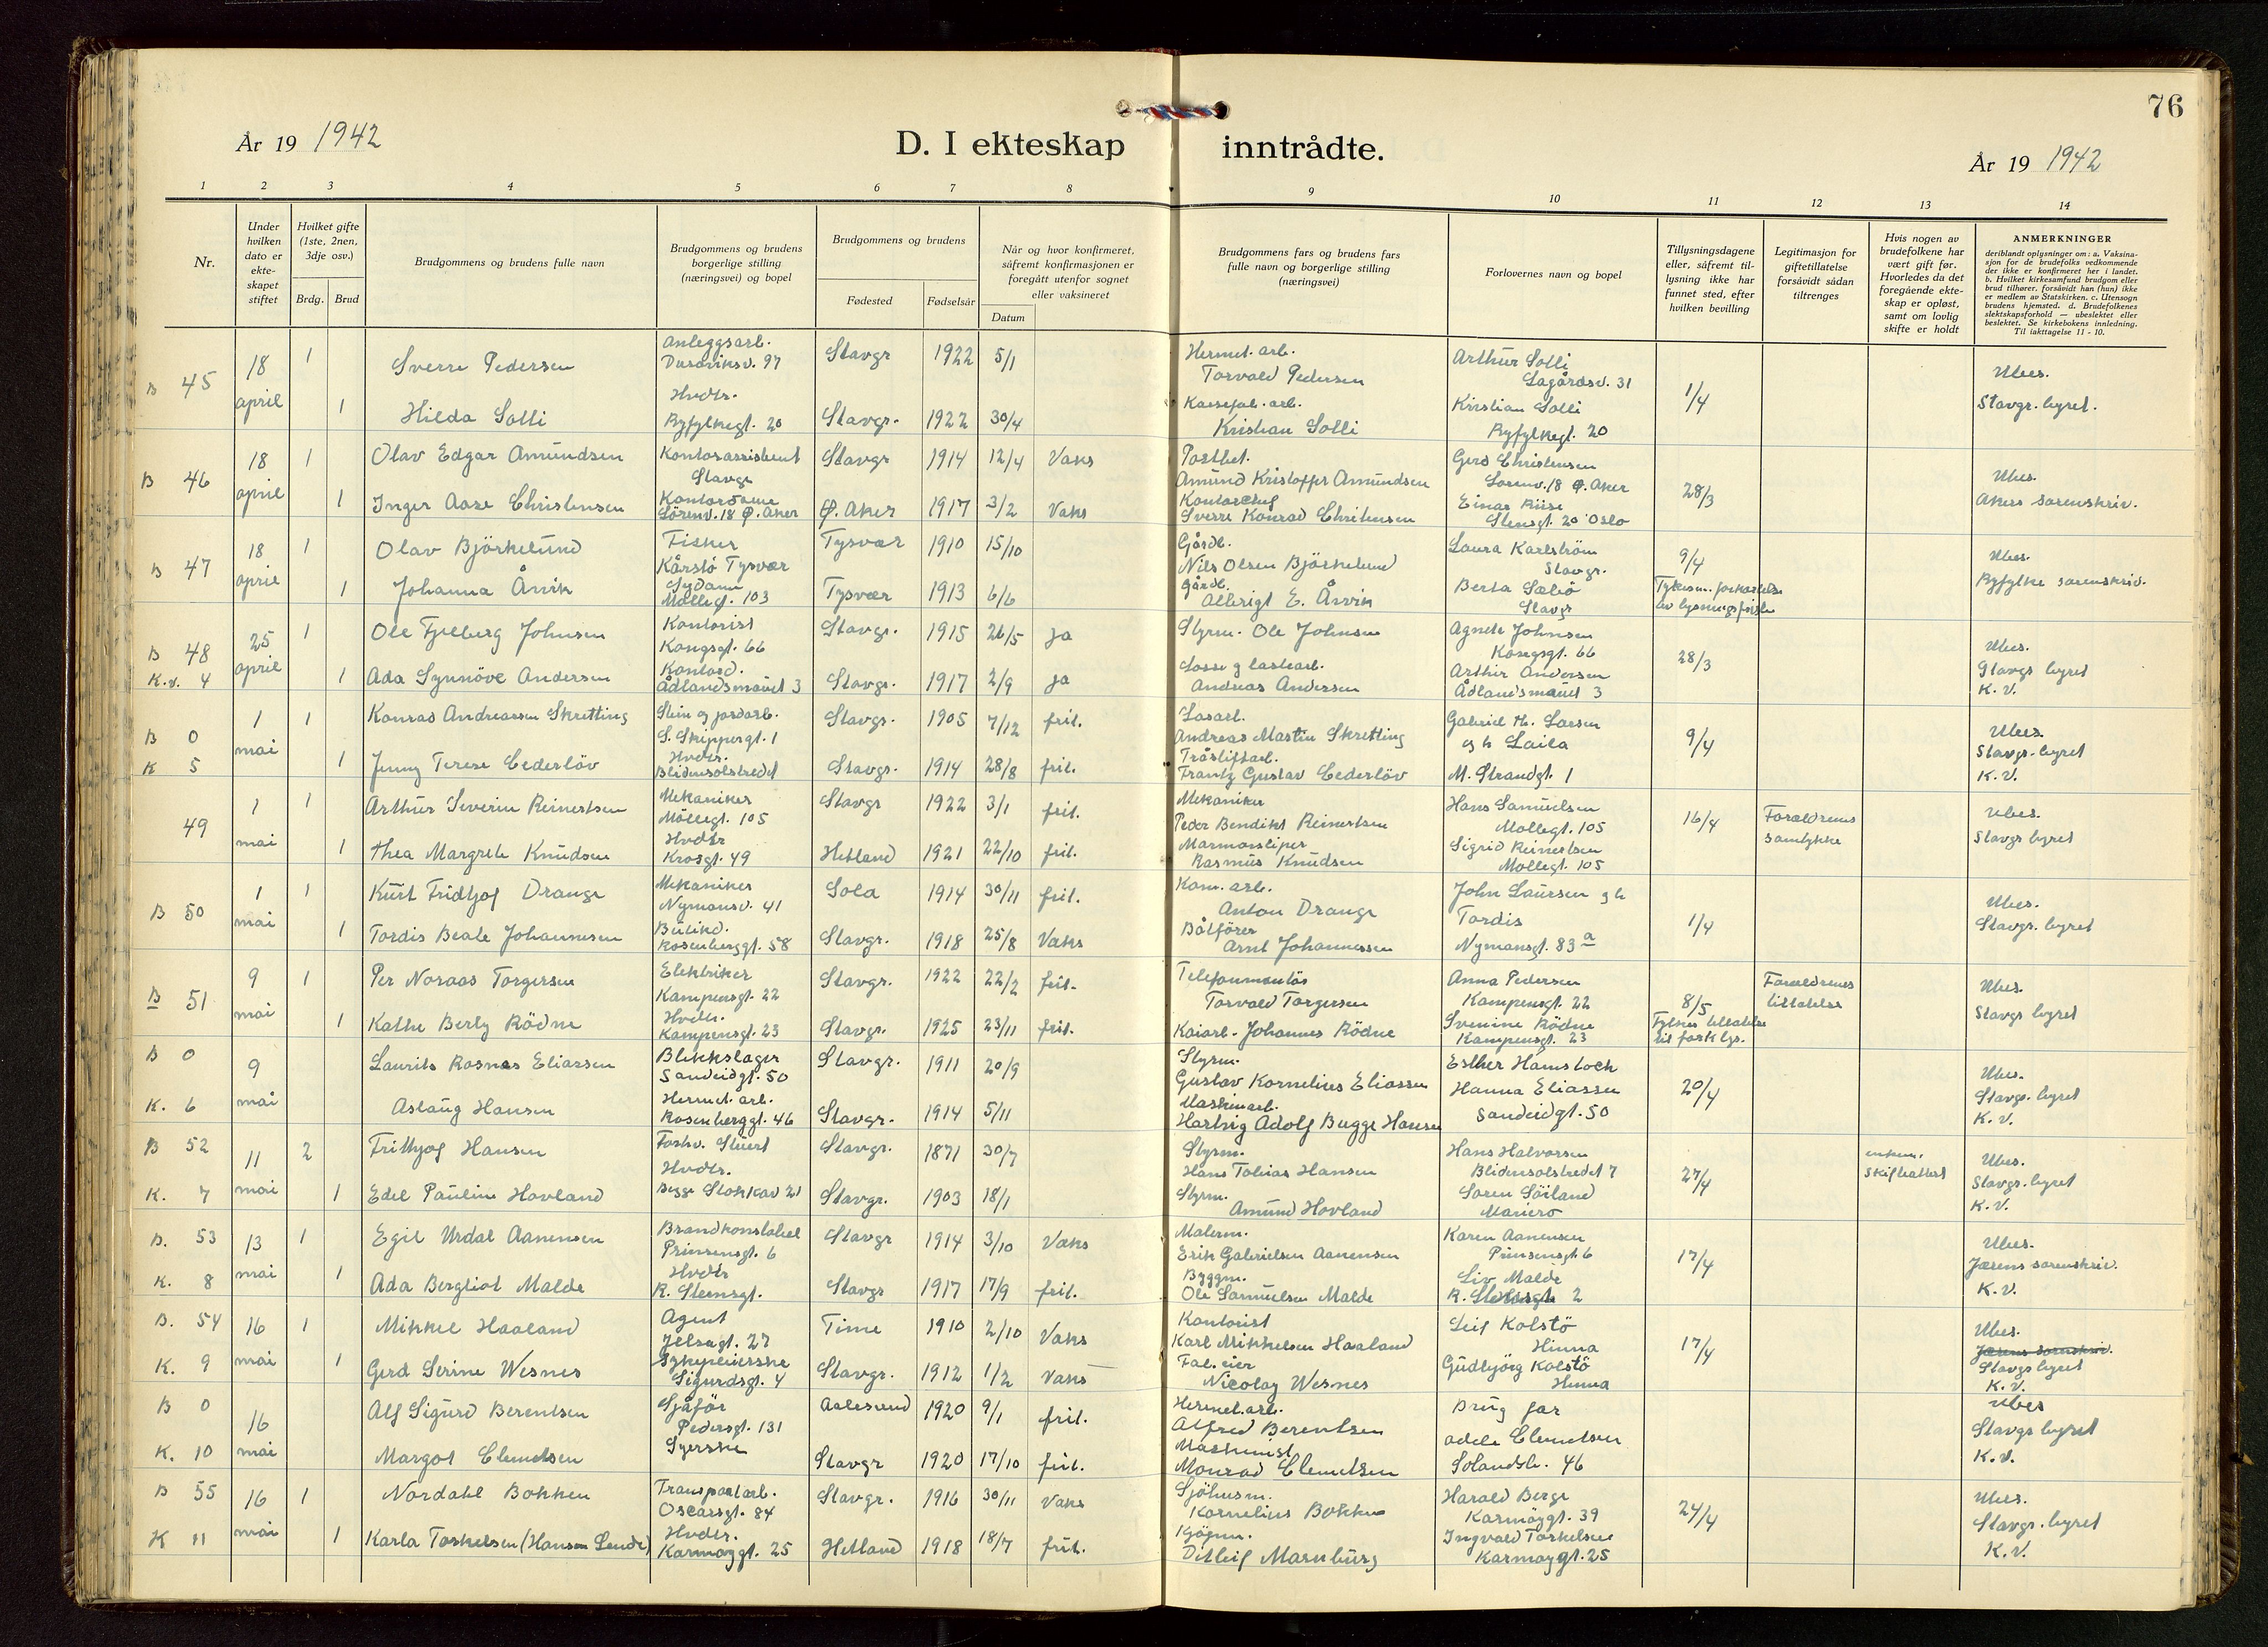 76
År 19 1942
D. I ekteskap inntrådte.
År 19 1942
1 2 3 4 5 6 7 8 9 10 11 12 13 14
Nr.
Under hvilken dato er ekteskapet stiftet
Hvilket gifte (1ste, 2nen, 3dje osv.)
Brdg. Brud
Brudgommens og brudens fulle navn
Brudgommens og brudens borgerlige stilling (næringsvei) og bopel
Brudgommens og brudens
Fødested Fødselsår
Når og hvor konfirmeret, såfremt konfirmasjonen er foregått utenfor sognet eller vaksineret
Datum
Brudgommens fars og brudens fars fulle navn og borgerlige stilling (næringsvei)
Forlovernes navn og bopel
Tillysningsdagene eller, såfremt tillysning ikke har funnet sted, efter hvilken bevilling
Legitimasjon for giftetillatelse forsåvidt sådan tiltrenges
Hvis nogen av brudefolkene har vært gift før. Hvorledes da det foregående ekteskap er opløst, samt om lovlig skifte er holdt
ANMERKNINGER
deriblandt oplysninger om: a. Vaksinasjon for de brudefolks vedkommende der ikke er konfirmeret her i landet. b. Hvilket kirkesamfund brudgom eller brud tilhører, forsåvidt han (hun) ikke er medlem av Statskirken. c. Utensogn brudens hjemsted. d. Brudefolkenes slektskapsforhold — ubeslektet eller beslektet. Se kirkebokens innledning. Til iakttagelse 11 - 10.
B 45 18 april 1 Sverre Pedersen Anleggsarb. Dusaviksv. 97 Stavgr 1922 5/1 Hermet. arb. Torvald Pedersen Arthur Solli Lagårdsv. 31 1/4 Ubes.
1 Hilda Solli Hvdtr. Ryfylkegt. 20 Stavgr. 1922 30/4 Kassefab. arb. Kristian Solli Kristian Solli Ryfylkegt. 20 Stavgr. byret.
B 46 18 april 1 Olav Edgar Amundsen Kontorassistent Stavgr Stavgr 1914 12/4 Vaks Postbet. Amund Kristoffer Amundsen Gerd Christensen Lørenv. 18 Ø. Aker 28/3 Ubes.
1 Inger Aase Christensen Kontordame Lørenv. 18 Ø. Aker Ø. Aker 1917 3/2 Vaks Kontorchef Sverre Konrad Christensen Einar Riise Stensgt. 20 Oslo Akers sorenskriv.
B 47 18 april 1 Olav Björkelund Fisker Kårstö Tysvær Tysvær 1910 15/10 Gårdb. Nils Olsen Björkelund Laura Karlström Stavgr. 9/4 Ubes.
1 Johanna Årvik Sydame Møllegt. 103 Tysvær 1913 6/6 Gårdb. Albrigt E. Årvik Berta Sæbö Stavgr Fylkesm. forkortelse av lysningsfrist Ryfylke sorenskriv.
B 48 25 april 1 Ole Fjelberg Johnsen Kontorist Kongsgt. 66 Stavgr. 1915 26/5 ja Styrm. Ole Johnsen Agnete Johnsen Kongsgt. 66 28/3 Ubes.
K.v. 4 1 Ada Synnöve Andersen Kontord. Ådlandsmauet 3 Stavgr. 1917 2/9 ja Losse og lastearb. Andreas Andersen Arthur Andersen Ådlandsmauet 3 Stavgr byret K.V.
B 0 1 mai 1 Konrad Andreassen Skretting Stein og jordarb. S. Skippergt. 1 Stavgr. 1905 7/12 frit. Losarb. Andreas Martin Skretting Gabriel Th. Larsen og h Laila 9/4 Ubes.
K 5 1 Jenny Terese Cederlöv Hvdtr. Blidensolstredet Stavgr. 1914 28/8 frit. Tråsliftarb. Frantz Gustav Cederlöv M. Strandgt. 1 Stavgr. byret K.V.
49 1 mai 1 Arthur Severin Reinertsen Mekaniker Möllegt. 105 Stavgr 1922 3/1 frit. Mekaniker Peder Bendikt Reinertsen Hans Samuelsen Møllegt. 105 16/4 Forældrenes samtykke Ubes.
1 Thea Margrete Knudsen Hvdtr Krosgt. 49 Hetland 1921 22/10 frit. Marmorsliper Rasmus Knudsen Sigrid Reinertsen Møllegt. 105 Stavgr byret
B 50 1 mai 1 Kurt Fridtjof Drange Mekaniker Nymansv. 41 Sola 1914 30/11 frit. Kom. arb. Anton Drange John Laursen og h Tordis 1/4 Ubes.
1 Tordis Beate Johannesen Butikd. Rosenberggt. 58 Stavgr. 1918 25/8 Vaks Båtfører Arnt Johannessen Nymansgt. 83 a Stavgr. byret
B 51 9 mai 1 Per Noraas Torgersen Elektriker Kampensgt. 22 Stavgr. 1922 22/2 frit. Telefonmontör Torvald Torgersen Anna Pedersen Kampensgt. 22 8/5 Forældrenes tillatelse Ubes.
1 Kathe Berly Rödne Hvdtr. Kampensgt. 23 Stavgr. 1925 23/11 frit. Kaiarb. Johannes Rödne Svenine Rödne Kampensgt. 23 Fylkes tillatelse til fork lys. Stavgr byret
B 0 9 mai Laurits Rosnes Eliassen Blikkslager Sandeidgt. 50 Stavgr. 1911 20/9 Styrm. Gustav Kornelius Eliassen Esther Hamstoch 20/4 Ubes.
K. 6 Aslaug Hansen Hermet. arb. Rosenberggt. 46 Stavgr. 1914 5/11 Maskinarb. Hartvig Adolf Bugge Hansen Hanna Eliassen Sandeidgt. 50 Stavgr. byret K.V.
B 52 11 mai 2 Frithjof Hansen Forhv. Stuert Stavgr. 1871 30/7 Styrm. Hans Tobias Hansen Hans Halvorsen Blidensolstredet 7 27/4 enkem. Skifteattest Ubes.
K. 7 1 Edel Pauline Hovland Hvdtr. Begge Stokkav 21 Stavgr. 1903 18/1 Styrm. Amund Hovland Soren Söiland Mariero Stavgr. byret K.V.
B. 53 13 mai 1 Egil Urdal Aanensen Brandkonstabel Prinsensgt. 6 Stavgr 1914 3/10 Vaks Malerm. Erik Gabrielsen Aanensen Karen Aanensen Prinsensgt. 6 17/4 Ubes.
K. 8 1 Ada Bergliot Malde Hvdtr R. Steensgt. Stavgr 1917 17/9 frit. Byggm. Ole Samuelsen Malde Liv Malde R. Steensgt 2 Jærens sorenskriv. K.V.
B. 54 16 mai 1 Mikkel Haaland Agent Jelsagt. 27 Time 1910 2/10 Vaks Kontorist Karl Mikkelsen Haaland Leif Kolstö Hinna 17/4 Ubes.
K. 9 1 Gerd Serine Wesnes Sykepleierske Sigurdsgt. 4 Stavgr. 1912 1/2 Vaks Fab. eier Nicolay Wesnes Gudbjörg Kolstö Hinna Jærens sorenskriv. Stavgr byret K.V.
B 0 16 mai Alf Sigurd Berentsen Sjåför Pedersgt. 131 Aalesund 1920 9/1 frit. Hermet. arb. Alfred Berentsen Brug far Ubes
K. 10 Margot Clemetsen Syerske Stavgr 1920 17/10 frit. Maskinist Monrad Clemetsen Adele Clemetsen Solandsb. 46 Stavgr byret K.V.
B 55 16 mai 1 Nordahl Bokken Transportarb. Oscarsgt. 84 Stavgr. 1916 30/11 Vaks Sjöhusm. Kornelius Bokken Harald Berge Karmøygt. 39 24/4 Ubes.
K 11 1 Karla Torkelsen (Hansen Lende) Hvdtr. Karmøygt. 25 Hetland 1918 18/7 frit. Kjøpm. Ditleif Marnburg Ingvald Torkelsen Karmøygt. 25 Stavgr. byret K.V.